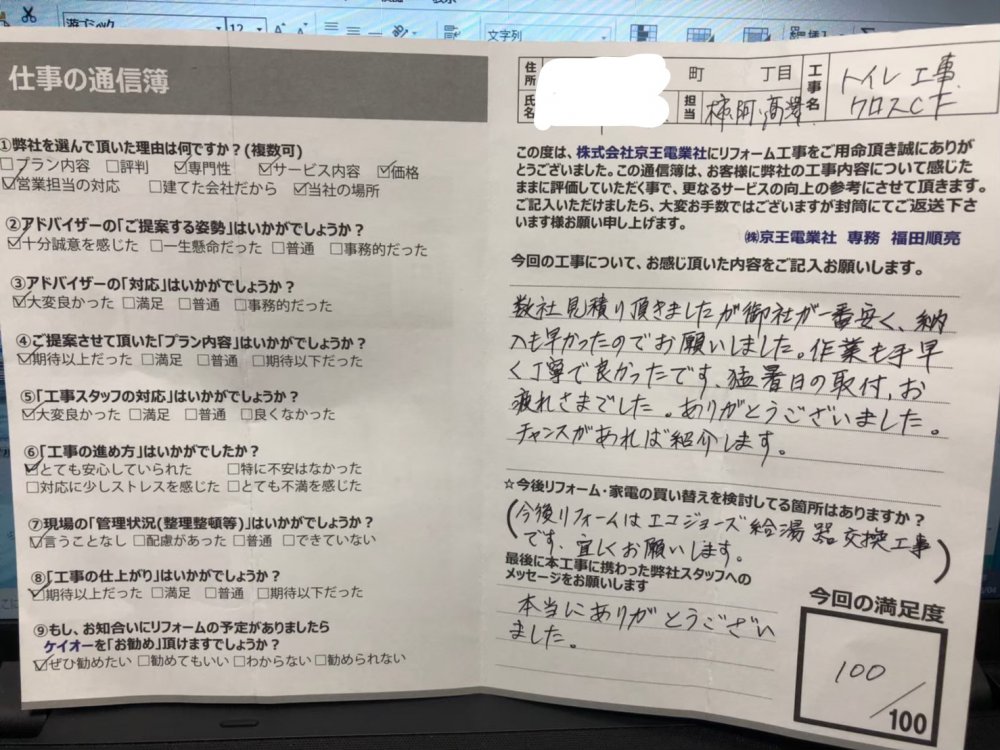 游ゴシック
12
文字列
仕事の通信簿
①弊社を選んで頂いた理由は何ですか？(複数可)
□プラン内容 □評判 ☑専門性 ☑サービス内容 ☑価格
☑営業担当の対応 □建てた会社だから ☑当社の場所
②アドバイザーの「ご提案する姿勢」はいかがでしょうか？
☑十分誠意を感じた □一生懸命だった □普通 □事務的だった
③アドバイザーの「対応」はいかがでしょうか？
☑大変良かった □満足 □普通 □事務的だった
④ご提案させて頂いた「プラン内容」はいかがでしょうか？
☑期待以上だった □満足 □普通 □期待以下だった
⑤「工事スタッフの対応」はいかがでしょうか？
☑大変良かった □満足 □普通 □良くなかった
⑥「工事の進め方」はいかがでしたか？
☑とても安心していられた □特に不安はなかった
□対応に少しストレスを感じた □とても不満を感じた
⑦現場の「管理状況(整理整頓等)」はいかがでしょうか？
☑言うことなし □配慮があった □普通 □できていない
⑧「工事の仕上がり」はいかがでしょうか？
☑期待以上だった □満足 □普通 □期待以下だった
⑨もし、お知合いにリフォームの予定がありましたら
ケイオーを「お勧め」頂けますでしょうか？
☑ぜひ勧めたい □勧めてもいい □わからない □勧められない
住所 町 丁目 工事名 トイレ工事
クロスCF
氏名 担当
この度は、株式会社京王電業社にリフォーム工事をご用命頂き誠にありが
とうございました。この通信簿は、お客様に弊社の工事内容について感じた
ままに評価していただく事で、更なるサービスの向上の参考にさせて頂きます。
ご記入いただけましたら、大変お手数ではございますが封筒にてご返送下さ
います様お願い申し上げます。
㈱京王電業社 専務 福田順亮
今回の工事について、お感じ頂いた内容をご記入お願いします。
数社見積り頂きましたが御社が一番安く、納
入も早かったのでお願いしました。作業も手早
く丁寧で良かったです、猛暑日の取付、お
疲れさまでした。ありがとうございました。
チャンスがあれば紹介します。
☆今後リフォーム・家電の買い替えを検討してる箇所はありますか？
(今後リフォームはエコジョーズ給湯器交換工事
です、宜しくお願いします。)
最後に本工事に携わった弊社スタッフへの
メッセージをお願いします
本当にありがとうござい
ました。
今回の満足度
100
/100